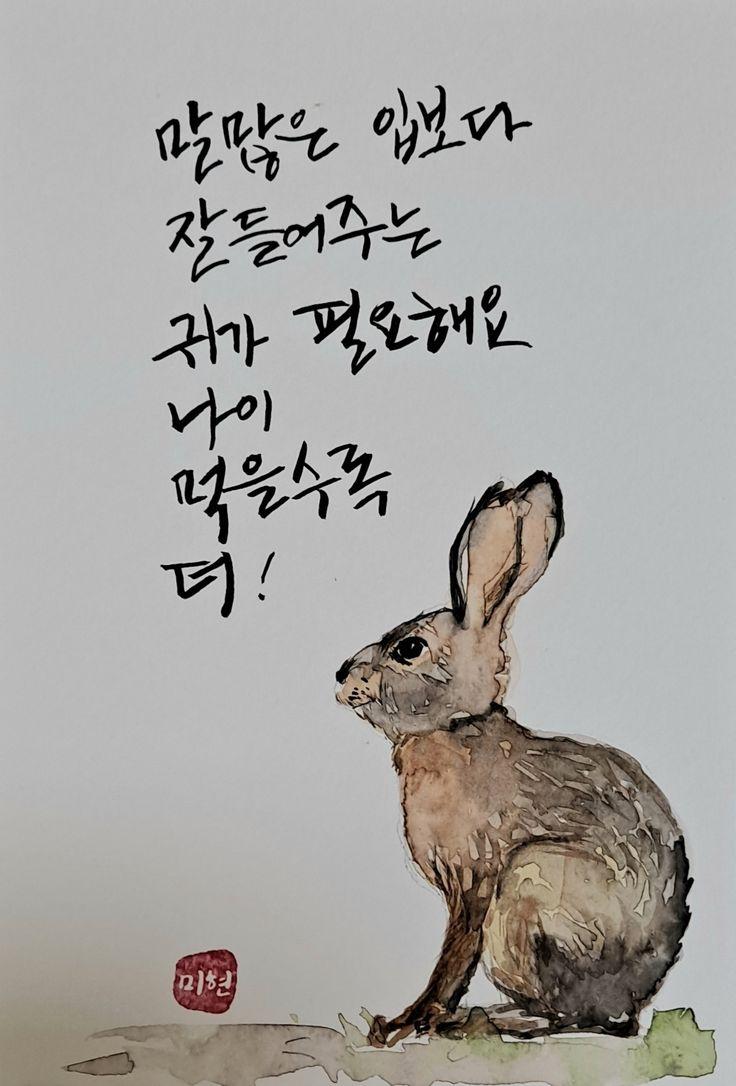 말많은 입보다
잘들어주는
귀가 필요해요
나이
먹을수록
더!
미현